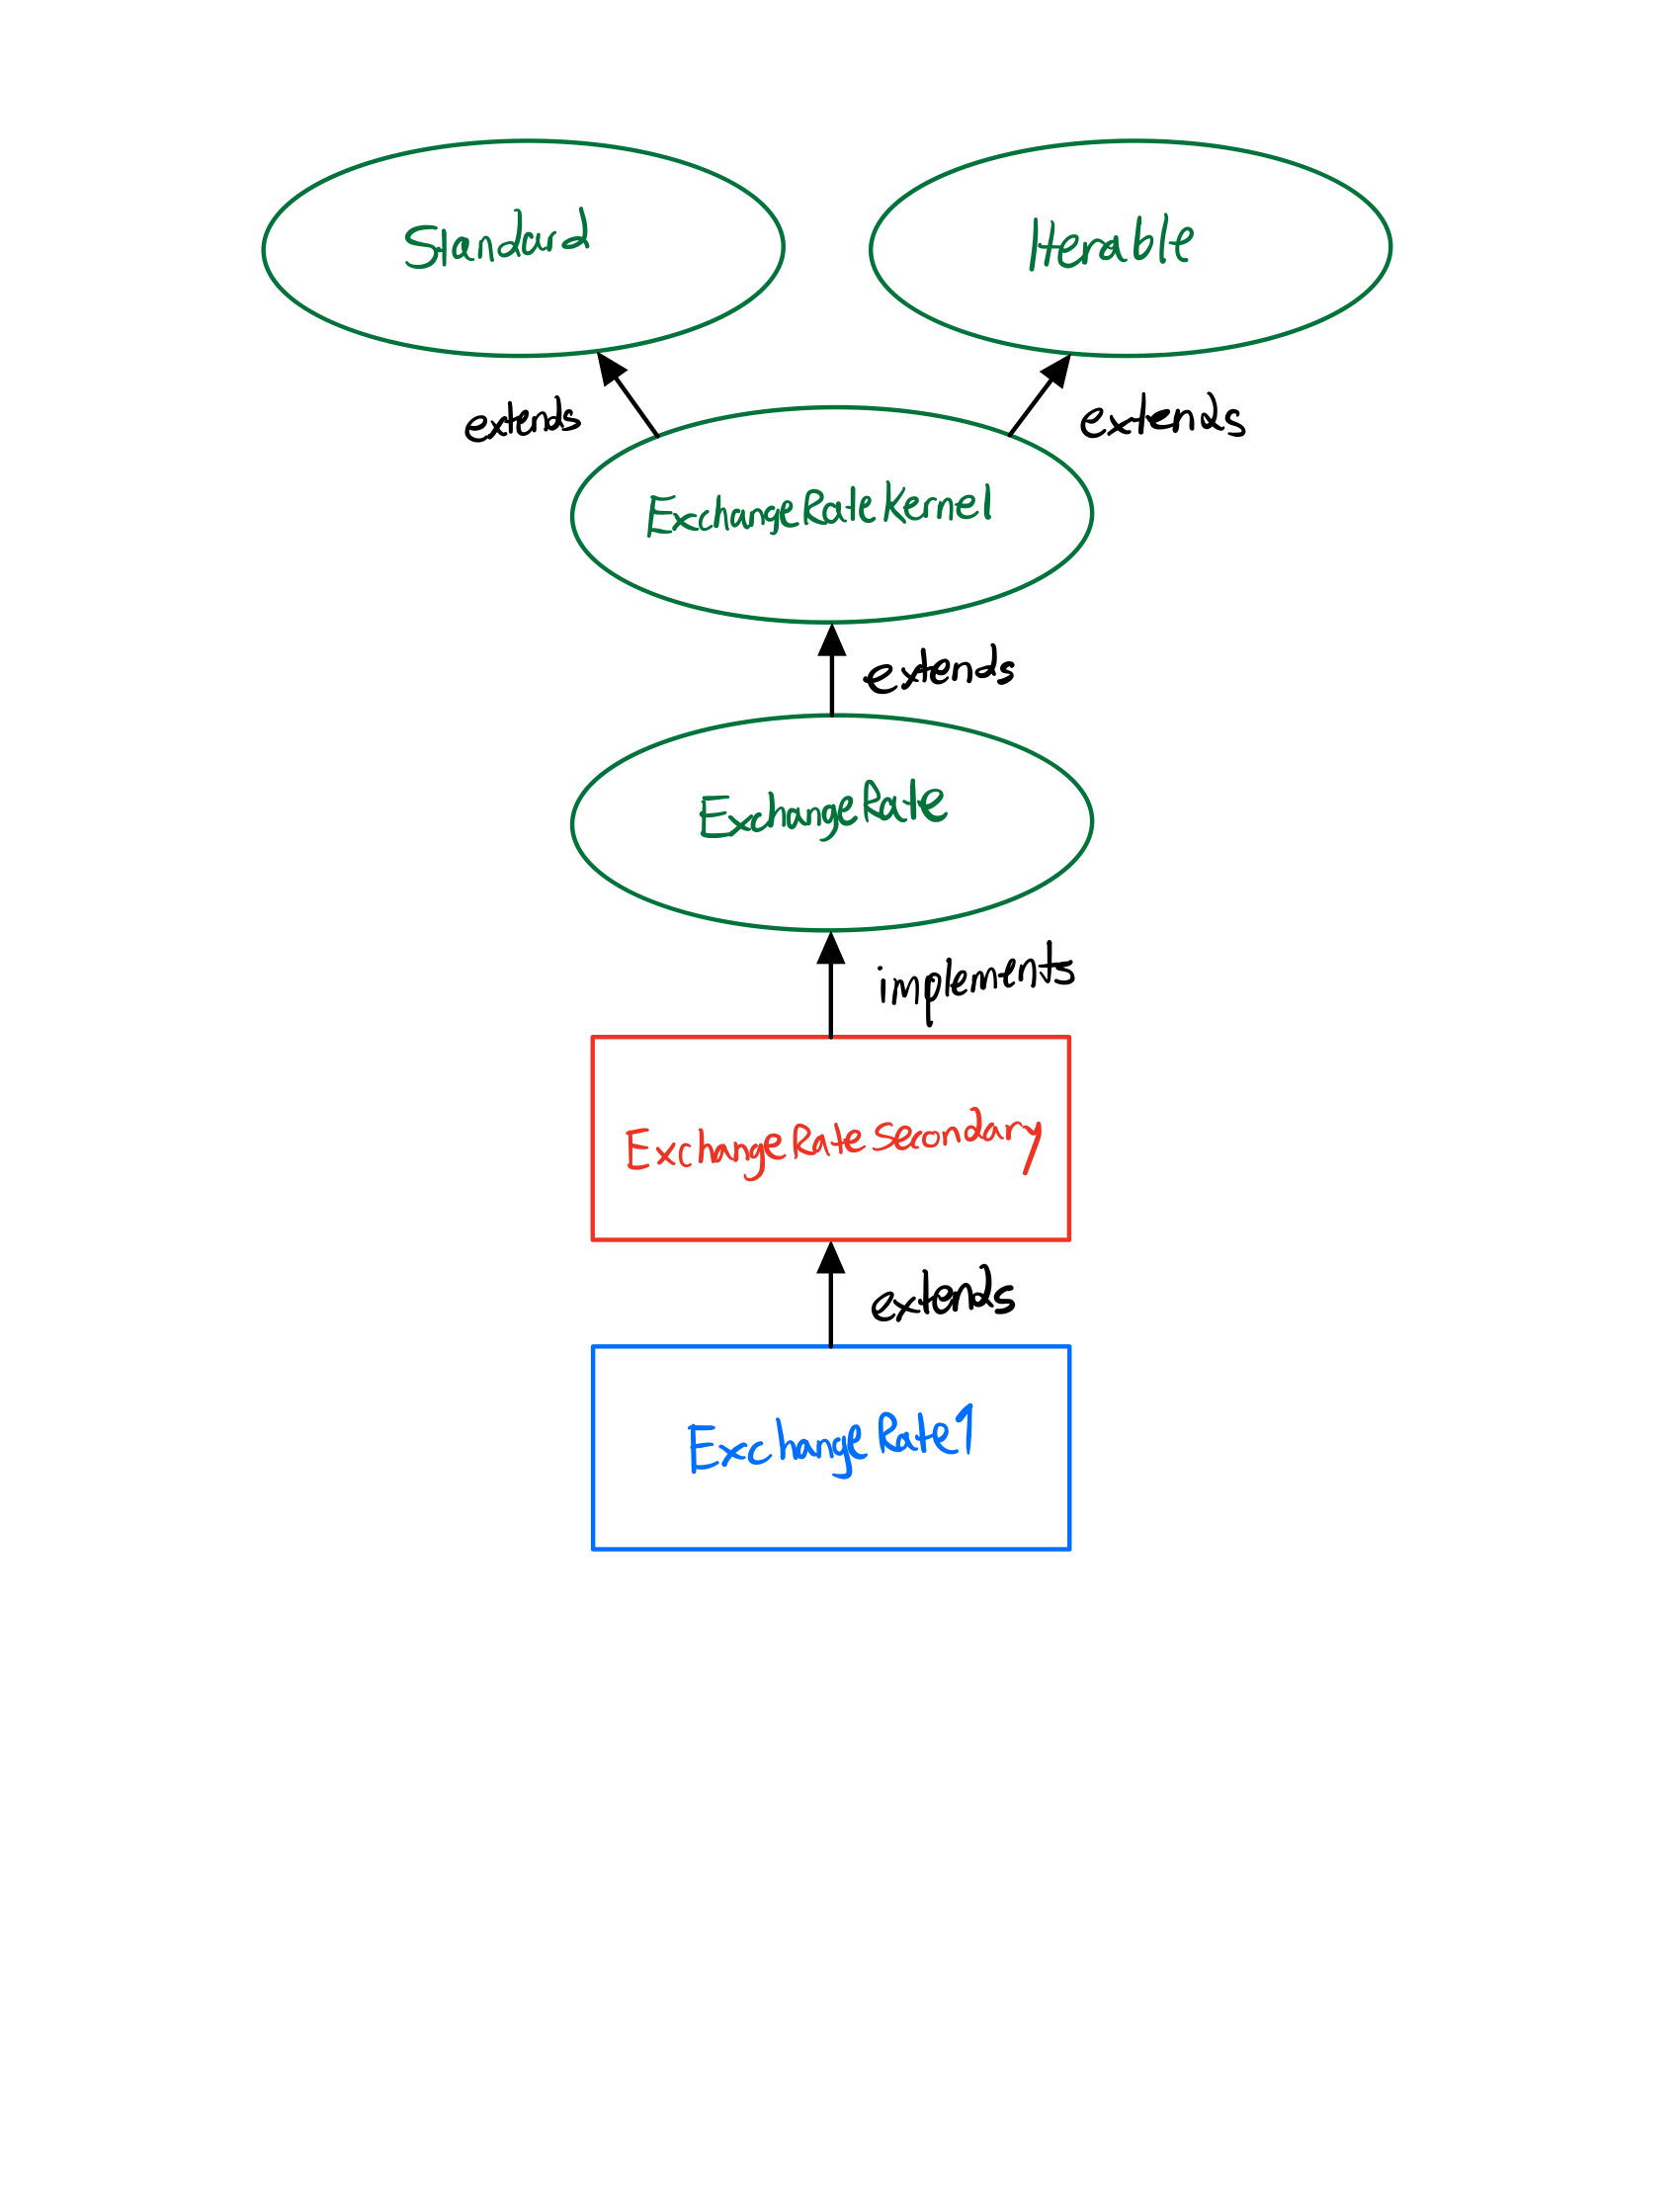 Standard
Iterable
extends
extends
ExchangeRateKernel
extends
ExchangeRate
implements
ExchangeRateSecondary
extends
ExchangeRate1